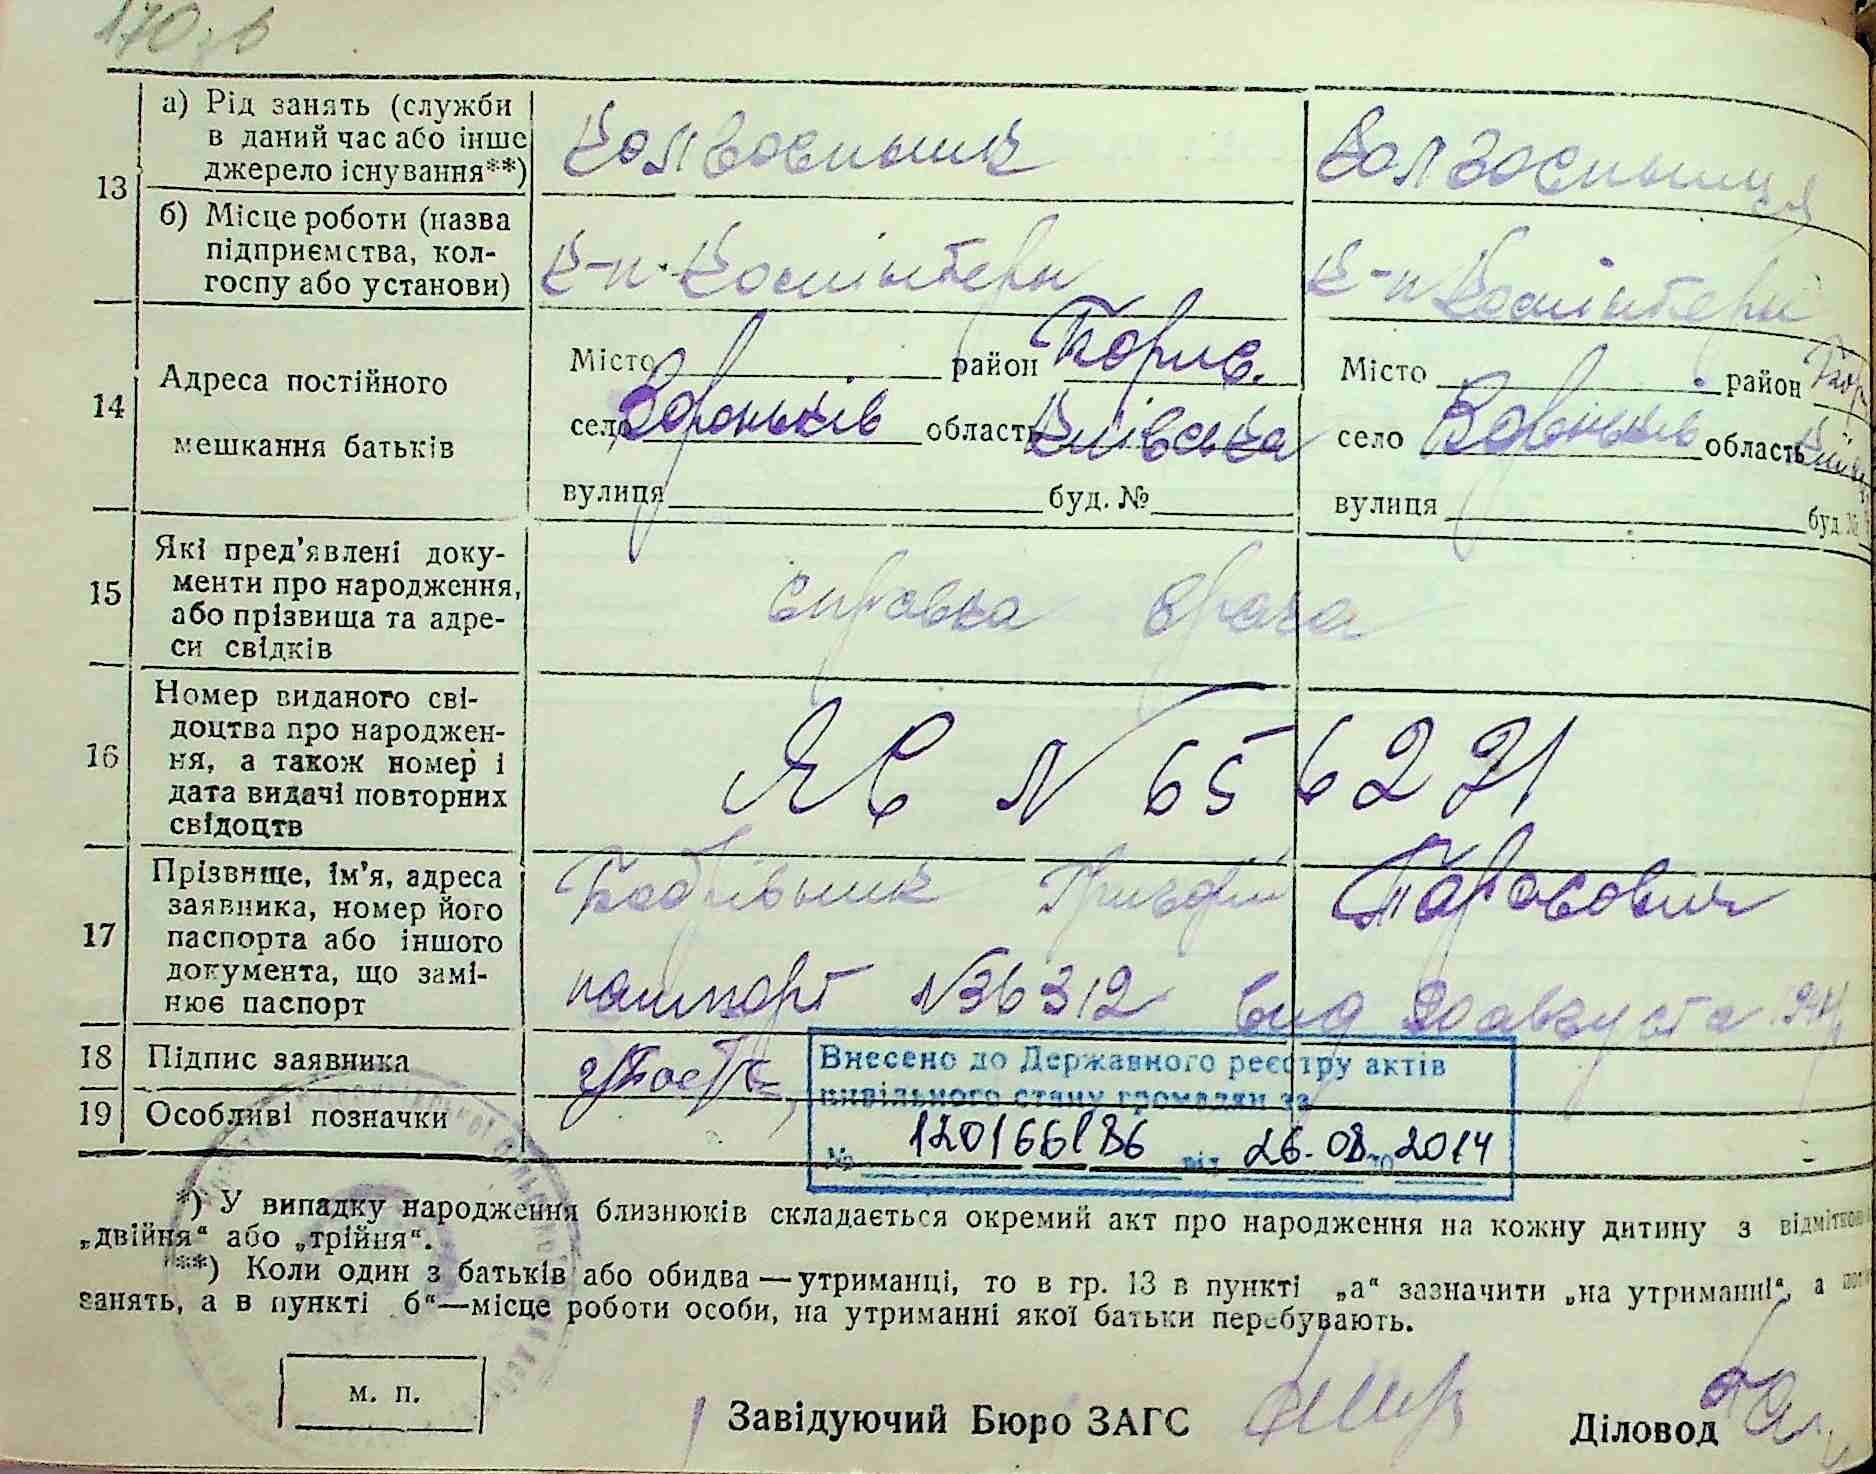 170зв
13
а) Рід занять (служби
в даний час або інше
джерело існування**)
Колгоспник
Колгоспниця
б) Місце роботи (назва
підприємства, кол-
госпу або установи)
К-п Комінтерн
К-п Комінтерн
14
Адреса постійного
мешкання батьків
Місто район Борис.
село Вороньків область Київська
вулиця буд. №
Місто район Бор
село Вороньків область Київ
вулиця буд. №
15
Які пред'явлені доку-
менти про народження,
або прізвища та адре-
си свідків
справка врача
16
Номер виданого сві-
доцтва про народжен-
ня, а також номер і
дата видачі повторних
свідоцтв
ЯС N 656221
17
Прізвище, ім'я, адреса
заявника, номер його
паспорта або іншого
документа, що замі-
нює паспорт
Григорій Тарасович
пашпорт №36312 вид 20 августа
18
Підпис заявника
19
Особливі позначки
Внесено до Державного реєстру актів
цивільного стану громадян за
№ 120166186 від 26.08 2014
*) У випадку народження близнюків складається окремий акт про народження на кожну дитину з відміткою
„двійня“ або „трійня“.
**) Коли один з батьків або обидва — утриманці, то в гр. 13 в пункті „а“ зазначити „на утриманні“, а
занять, а в пункті б“—місце роботи особи, на утриманні якої батьки перебувають.
м. п.
Завідуючий Бюро ЗАГС
Діловод